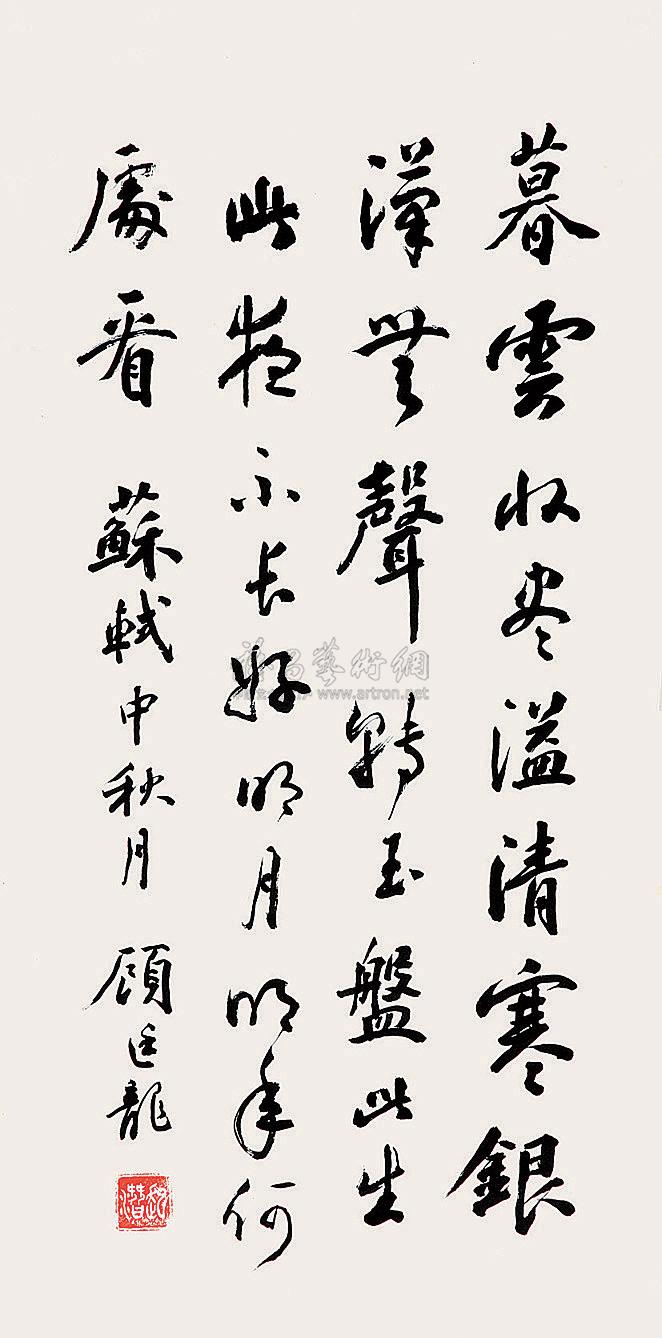 暮雲收尽溢清寒銀
漢無聲轉玉盤此生
此夜不长好明月明年何
處看 蘇軾中秋月 顧廷龍
www.artron.net